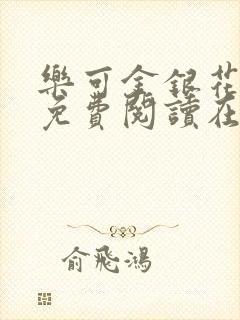 樂可金銀花
免費閱讀在
俞飛鴻